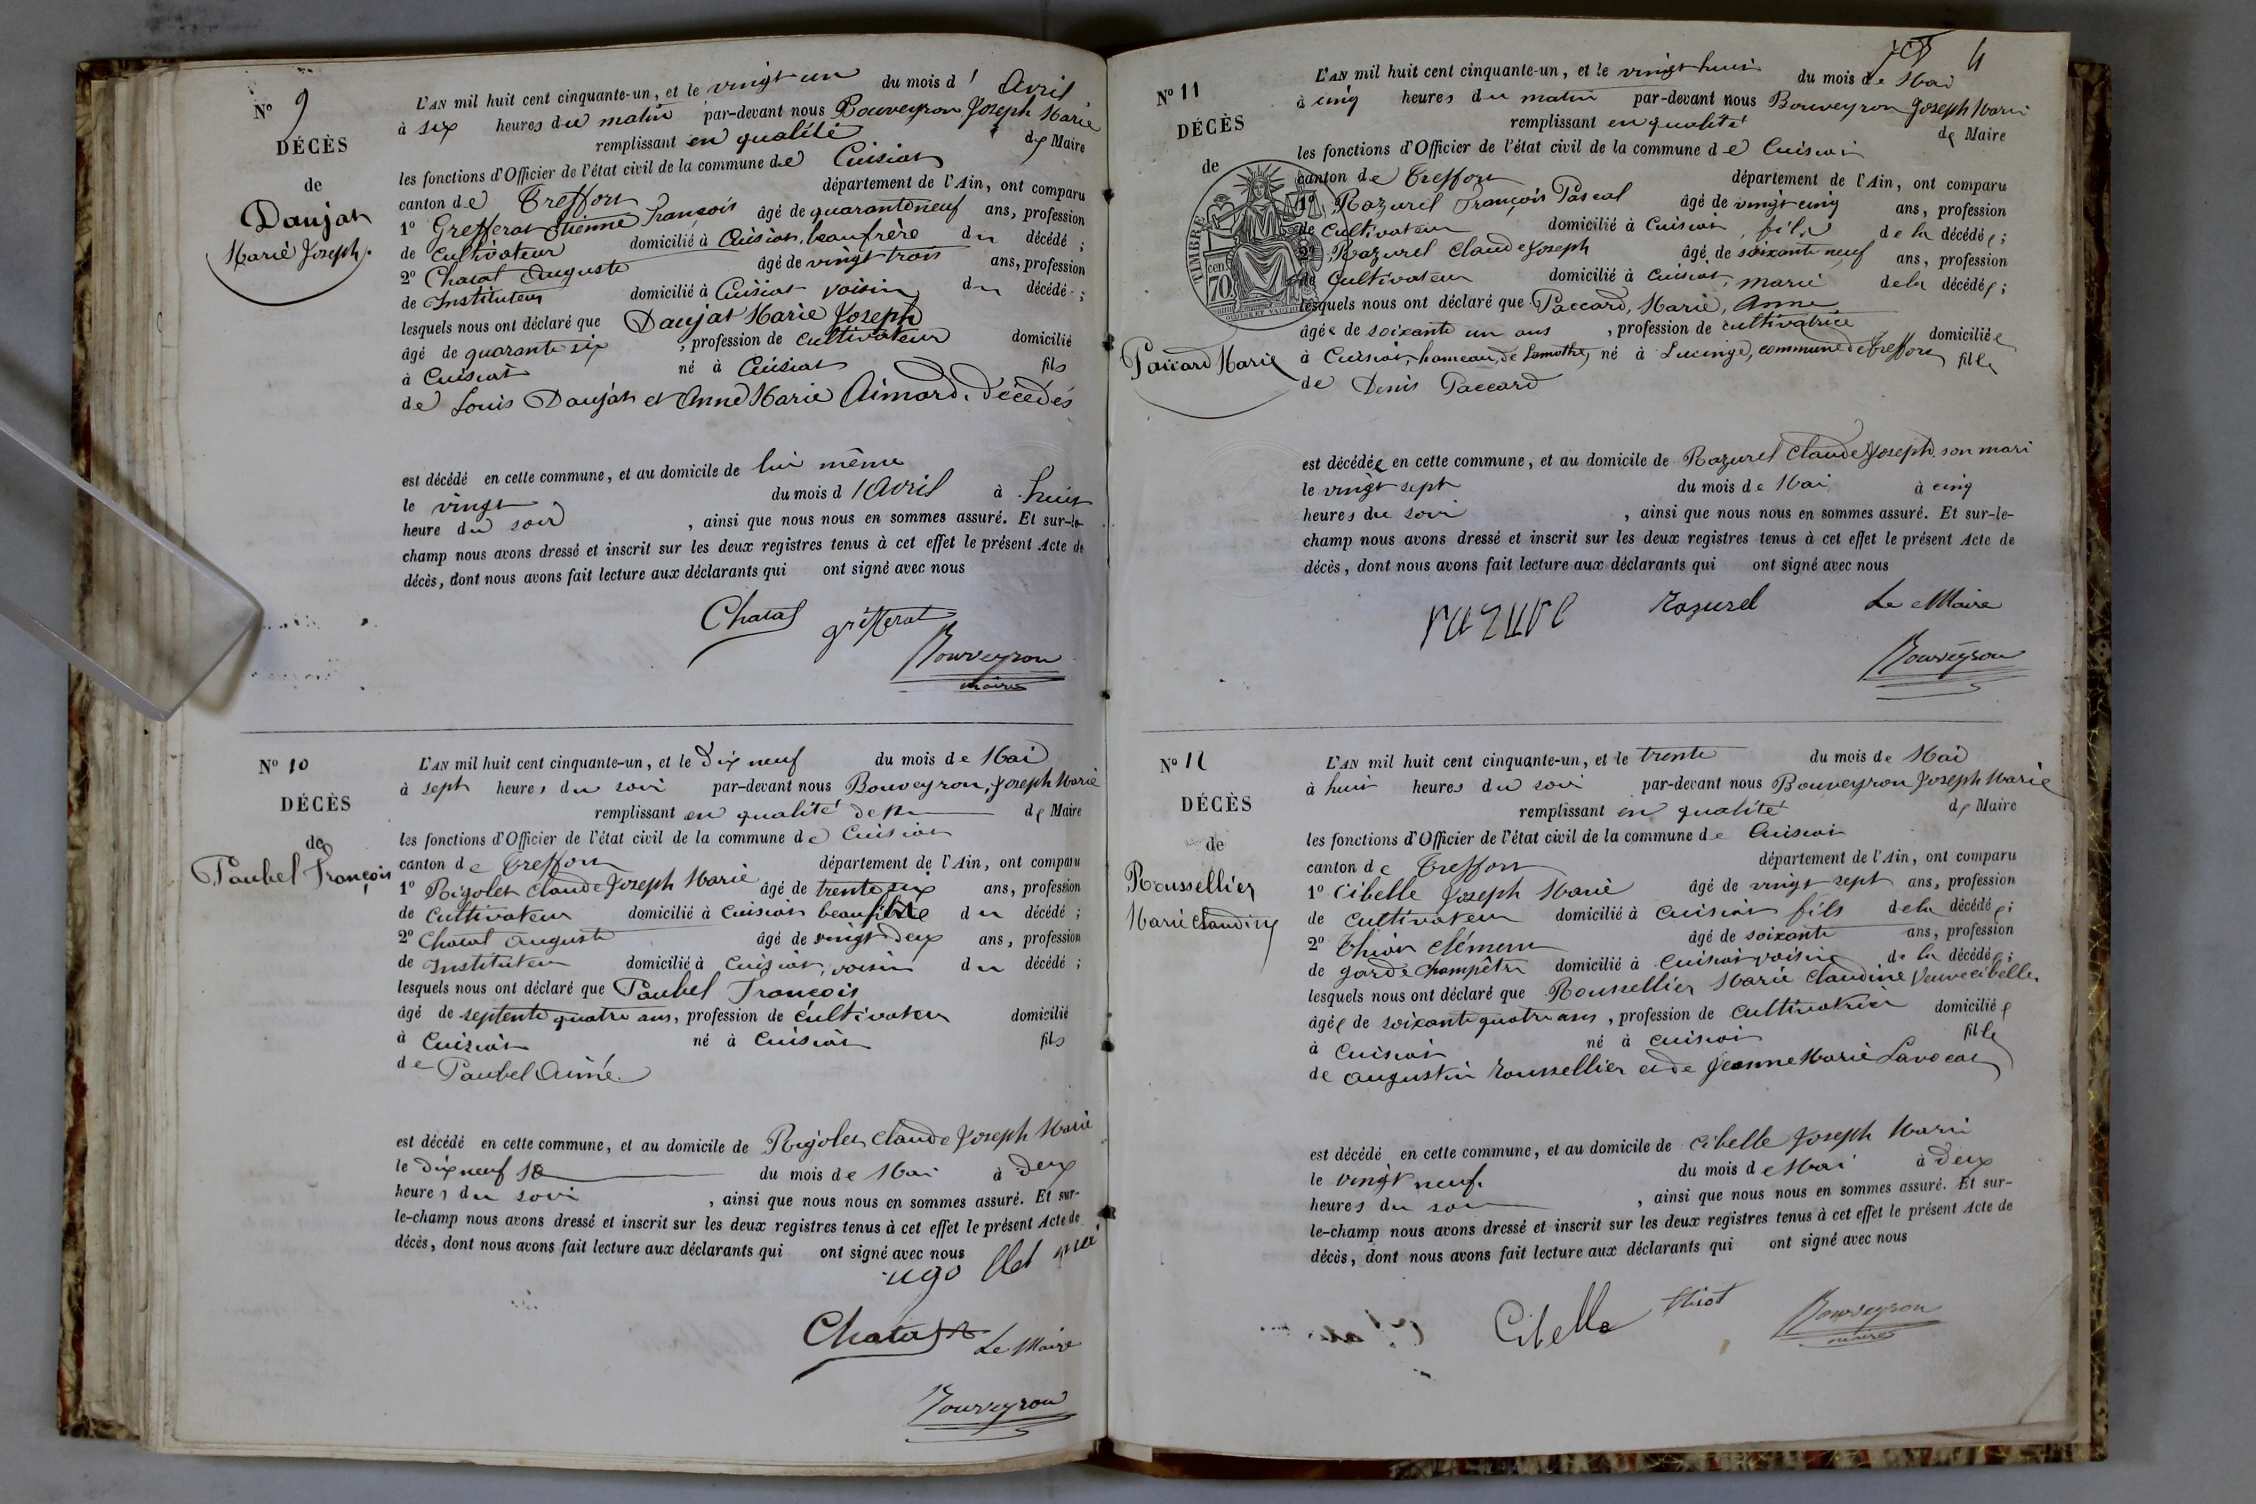 N° 9
DÉCÈS
de
Daujat
Marie Joseph.
L'AN mil huit cent cinquante-un, et le vingt un du mois d' Avril
à six heures du matin par-devant nous Bouveyron Joseph Marie
remplissant en qualité de Maire
les fonctions d'Officier de l'état civil de la commune de Cuisiat
canton de Treffort département de l'Ain, ont comparu
1° Grefferat Etienne François âgé de quarante neuf ans, profession
de Cultivateur domicilié à Cuisiat, beaufrère du décédé ;
2° Chatal Auguste âgé de vingt trois ans, profession
de Instituteur domicilié à Cuisiat voisin du décédé ;
lesquels nous ont déclaré que Daujat Marie Joseph
âgé de quarante six , profession de Cultivateur domicilié
à Cuisiat né à Cuisiat fils
de Louis Daujat et Anne Marie Aimard. décédés
est décédé en cette commune, et au domicile de lui même
le vingt du mois d'Avril à huit
heure du soir , ainsi que nous nous en sommes assuré. Et sur-le-
champ nous avons dressé et inscrit sur les deux registres tenus à cet effet le présent Acte de
décès, dont nous avons fait lecture aux déclarants qui ont signé avec nous
Chatal grifferat
Bouveyron
maire
N° 10
DÉCÈS
de
Paubel François
L'AN mil huit cent cinquante-un, et le Dix neuf du mois de Mai
à sept heures du soir par-devant nous Bouveyron, Joseph Marie
remplissant en qualité de Maire
les fonctions d'Officier de l'état civil de la commune de Cuisiat
canton de Treffort département de l'Ain, ont comparu
1° Rigolet Claude Joseph Marie âgé de trente six ans, profession
de Cultivateur domicilié à Cuisiat beaufils du décédé ;
2° Chatal Auguste âgé de vingt Deux ans, profession
de Instituteur domicilié à Cuisiat, voisin du décédé ;
lesquels nous ont déclaré que Paubel François
âgé de septente quatre ans, profession de Cultivateur domicilié
à Cuisiat né à Cuisiat fils
de Paubel Aimé.
est décédé en cette commune, et au domicile de Rigolet Claude Joseph Marie
le Dix neuf du mois de Mai à Deux
heures du soir , ainsi que nous nous en sommes assuré. Et sur-
le-champ nous avons dressé et inscrit sur les deux registres tenus à cet effet le présent Acte de
décès, dont nous avons fait lecture aux déclarants qui ont signé avec nous
Chatal Le Maire
Bouveyron
4
N° 11
DÉCÈS
de
Paccard Marie
TIMBRE
70
L'AN mil huit cent cinquante-un, et le vingt huit du mois de Mai
à cinq heures du matin par-devant nous Bouveyron Joseph Marie
remplissant en qualité de Maire
les fonctions d'Officier de l'état civil de la commune de Cuisiat
canton de Treffort département de l'Ain, ont comparu
1° Razurel François Pascal âgé de vingt cinq ans, profession
de Cultivateur domicilié à Cuisiat, fils de la décédée ;
2° Razurel Claude Joseph âgé de soixante neuf ans, profession
de Cultivateur domicilié à Cuisiat, marié de la décédée ;
lesquels nous ont déclaré que Paccard, Marie, Anne
âgée de soixante un ans , profession de cultivatrice domiciliée
à Cuisiat, hameau de Lamothe, né à Lucinge, commune de Treffort fille
de Denis Paccard
est décédée en cette commune, et au domicile de Razurel Claude Joseph son mari
le vingt sept du mois de Mai à cinq
heures du soir , ainsi que nous nous en sommes assuré. Et sur-le-
champ nous avons dressé et inscrit sur les deux registres tenus à cet effet le présent Acte de
décès, dont nous avons fait lecture aux déclarants qui ont signé avec nous
razurel Le Maire
Bouveyron
N° 12
DÉCÈS
de
Roussellier
Marie Claudine
L'AN mil huit cent cinquante-un, et le trente du mois de Mai
à huit heures du soir par-devant nous Bouveyron Joseph Marie
remplissant en qualité de Maire
les fonctions d'Officier de l'état civil de la commune de Cuisiat
canton de Treffort département de l'Ain, ont comparu
1° Cibelle Joseph Marie âgé de vingt sept ans, profession
de cultivateur domicilié à Cuisiat fils de la décédée ;
2° Thiot Clément âgé de soixante ans, profession
de garde champêtre domicilié à Cuisiat voisin de la décédée ;
lesquels nous ont déclaré que Roussellier Marie Claudine Veuve Cibelle
âgée de soixante quatre ans , profession de Cultivatrice domiciliée
à Cuisiat né à Cuisiat fille
de Augustin Roussellier et de Jeanne Marie Lavocat
est décédé en cette commune, et au domicile de Cibelle Joseph Marie
le vingt neuf. du mois de Mai à Deux
heures du soir , ainsi que nous nous en sommes assuré. Et sur-
le-champ nous avons dressé et inscrit sur les deux registres tenus à cet effet le présent Acte de
décès, dont nous avons fait lecture aux déclarants qui ont signé avec nous
Cibelle thiot Bouveyron
maire